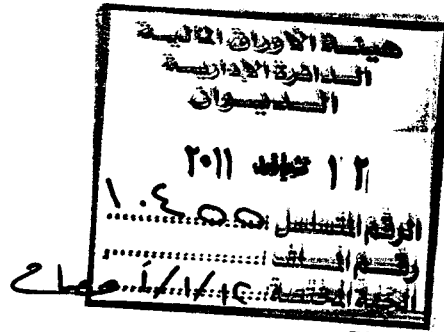 هيئة الاوراق المالية
الدائرة الادارية
الديوان
١٢ ٢٠١١
الرقم المتسلسل ١٠٤٥٥
رقم الملف
الجهة المختصة